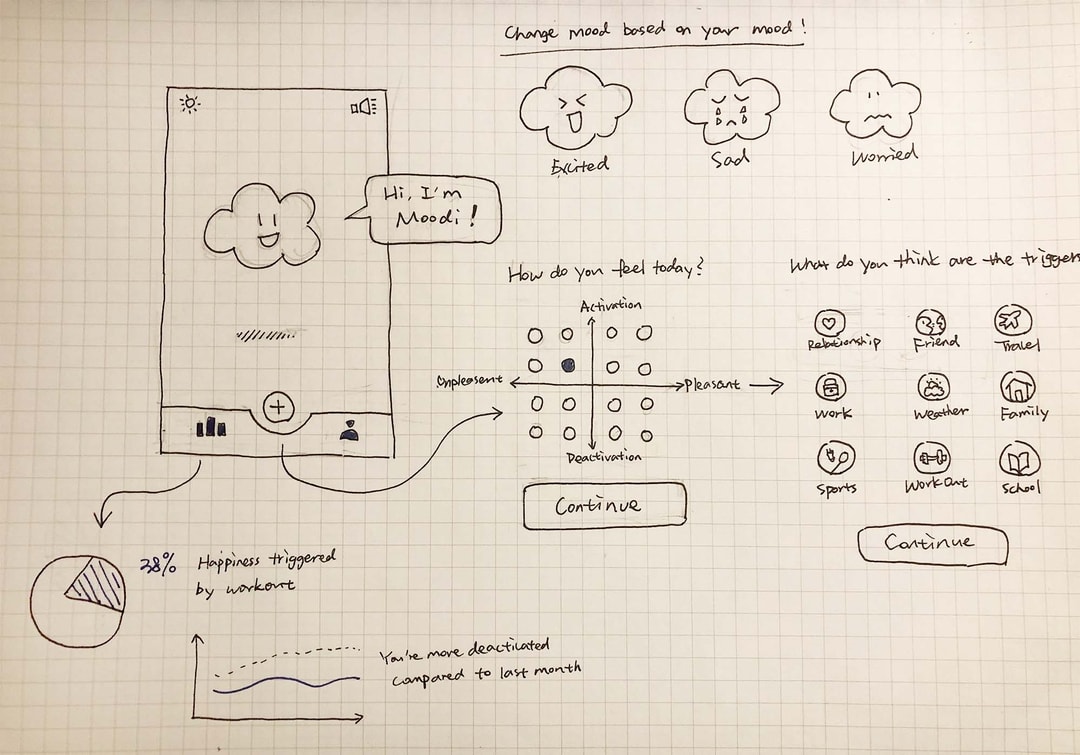 Change mood based on your mood!
Excited
Sad
Worried
Hi, I'm
Moodi!
How do you feel today?
Activation
Unpleasent
Pleasant
Deactivation
Continue
What do you think are the triggers
Relationship
Friend
Travel
Work
Weather
Family
Sports
Work Out
School
Continue
38%
Happiness triggered
by workout
You're more deacticated
compared to last month